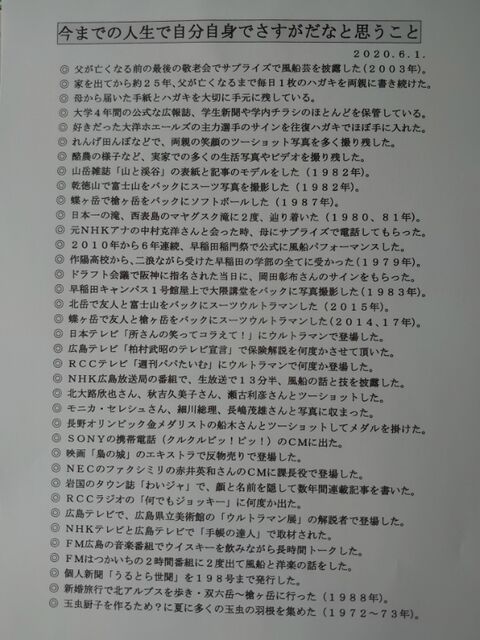 今までの人生で自分自身でさすがだなと思うこと
2020.6.1.
◎ 父が亡くなる前の最後の敬老会でサプライズで風船芸を披露した(2003年)。
◎ 家を出てから約25年、父が亡くなるまで毎日1枚のハガキを両親に書き続けた。
◎ 母から届いた手紙とハガキを大切に手元に残している。
◎ 大学4年間の公式な広報誌、学生新聞や学内チラシのほとんどを保管している。
◎ 好きだった大洋ホエールズの主力選手のサインを往復ハガキでほぼ手に入れた。
◎ れんげ田んぼなどで、両親の笑顔のツーショット写真を多く撮り残した。
◎ 酪農の様子など、実家での多くの生活写真やビデオを撮り残した。
◎ 山岳雑誌「山と渓谷」の表紙と記事のモデルをした(1982年)。
◎ 乾徳山で富士山をバックにスーツ写真を撮影した(1982年)。
◎ 蝶ヶ岳で槍ヶ岳をバックにソフトボールした(1987年)。
◎ 日本一の滝、西表島のマヤグスク滝に2度、辿り着いた(1980、81年)。
◎ 元NHKアナの中村克洋さんと会った時、母にサプライズで電話してもらった。
◎ 2010年から6年連続、早稲田稲門祭で公式に風船パフォーマンスした。
◎ 作陽高校から、二浪ながら受けた早稲田の学部の全てに受かった(1979年)。
◎ ドラフト会議で阪神に指名された当日に、岡田彰布さんのサインをもらった。
◎ 早稲田キャンパス1号館屋上で大隈講堂をバックに写真撮影した(1983年)。
◎ 北岳で友人と富士山をバックにスーツウルトラマンした(2015年)。
◎ 蝶ヶ岳で友人と槍ヶ岳をバックにスーツウルトラマンした(2014、17年)。
◎ 日本テレビ「所さんの笑ってコラえて!」にウルトラマンで登場した。
◎ 広島テレビ「柏村武昭のテレビ宣言」で保険解説を何度かさせて頂いた。
◎ RCCテレビ「週刊パパたいむ」にウルトラマンで何度か登場した。
◎ NHK広島放送局の番組で、生放送で13分半、風船の話と技を披露した。
◎ 北大路欣也さん、秋吉久美子さん、瀬古利彦さんとツーショットした。
◎ モニカ・セレシュさん、細川総理、長嶋茂雄さんと写真に収まった。
◎ 長野オリンピック金メダリストの船木さんとツーショットしてメダルを掛けた。
◎ SONYの携帯電話(クルクルピッ!ピッ!)のCMに出た。
◎ 映画「梟の城」のエキストラで反物売りで登場した。
◎ NECのファクシミリの赤井英和さんのCMに課長役で登場した。
◎ 岩国のタウン誌「わいジャ」で、顔と名前を隠して数年間連載記事を書いた。
◎ RCCラジオの「何でもジョッキー」に何度か出た。
◎ 広島テレビで、広島県立美術館の「ウルトラマン展」の解説者で登場した。
◎ NHKテレビと広島テレビで「手帳の達人」で取材された。
◎ FM広島の音楽番組でウイスキーを飲みながら長時間トークした。
◎ FMはつかいちの2時間番組に2度出て風船と洋楽の話をした。
◎ 個人新聞「うるとら世聞」を198号まで発行した。
◎ 新婚旅行で北アルプスを歩き・双六岳~槍ヶ岳に行った(1988年)。
◎ 玉虫厨子を作るため?に夏に多くの玉虫の羽根を集めた(1972~73年)。